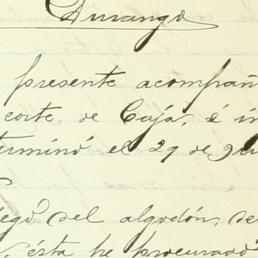 Durango
presente acompañ
corte de Caja, é in
terminó el 29 de
egó del algodón, de
ésta he procurado